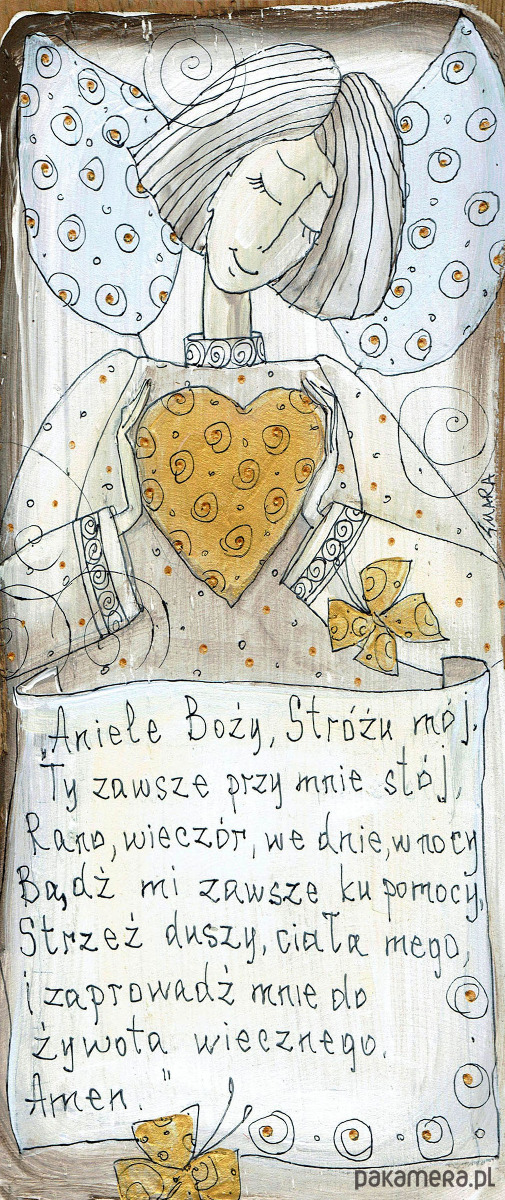 „Aniele Boży, Stróżu mój.
Ty zawsze przy mnie stój,
Rano, wieczór, we dnie, w nocy
Bądź mi zawsze ku pomocy,
Strzeż duszy, ciała mego,
i zaprowadź mnie do
żywota wiecznego.
Amen."
pakamera.pl